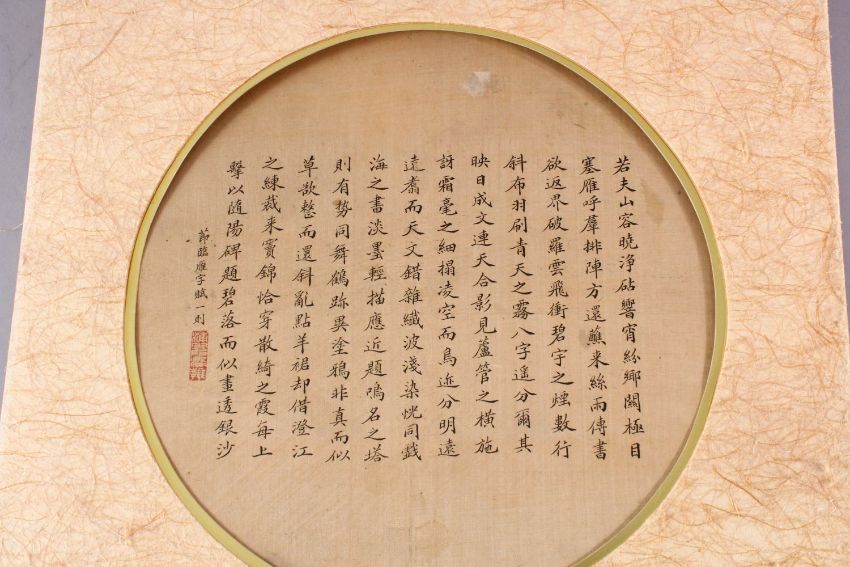 若夫山容曉淨砧響宵紛鄉關極目
塞雁呼羣排陣方還蘸来絲雨傳書
欲返界破羅雲飛衝碧宇之煙數行
斜布羽刷青天之霧八字遥分爾其
映日成文連天合影見蘆管之橫施
訝霜毫之細搨凌空而鳥迹分明遠
遠翥而天文錯雜纖波淺染恍同戲
海之書淡墨輕描應近題鳴名之塔
則有势同舞鶴跡異塗鴉非真而似
草欲整而還斜亂點羊裙却借澄江
之練裁来竇錦恰穿散綺之霞每上
擊以随陽碑題碧落而似畫透銀沙
節臨雁字賦一則